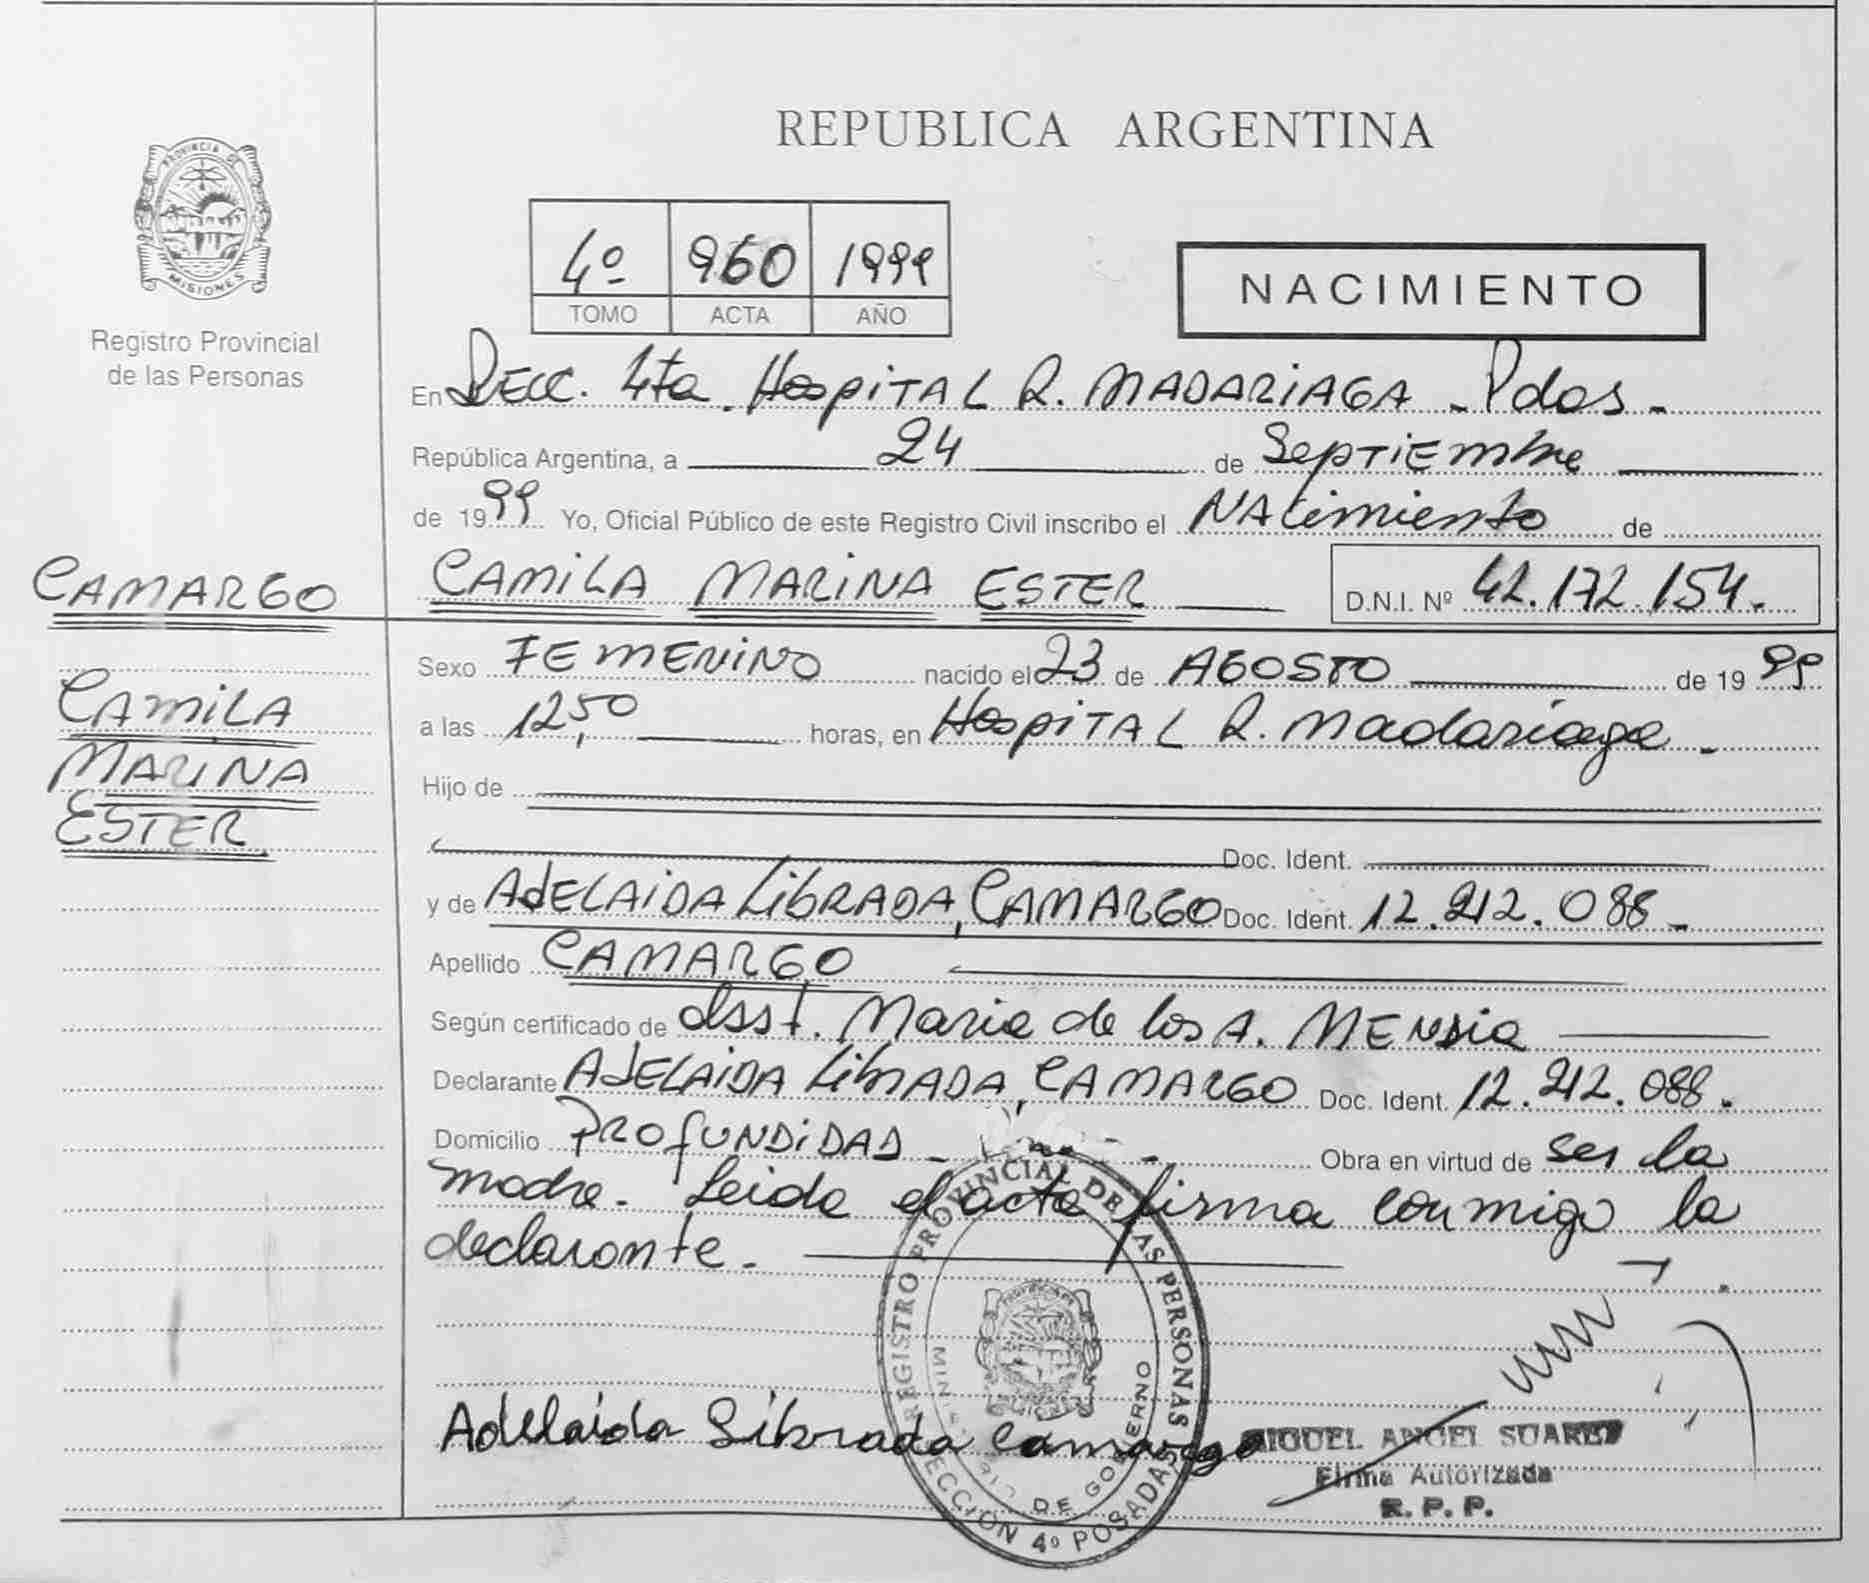 REPUBLICA ARGENTINA
PROVINCIA DE
MISIONES
Registro Provincial
de las Personas
4º 960 1999
TOMO ACTA AÑO
NACIMIENTO
En Secc. 4ta. Hospital R. MADARIAGA - Pdas -
República Argentina, a 24 de Septiembre
de 1999 Yo, Oficial Público de este Registro Civil inscribo el NAcimiento de
CAMARGO
CAMILA MARINA ESTER D.N.I. Nº 42.172.154.
CAMILA
MARINA
ESTER
Sexo FEMENINO nacido el 23 de AGOSTO de 1999
a las 12,50 horas, en HospiTAL R. Madariaga -
Hijo de
Doc. Ident.
y de ADELAIDA LIBRADA, CAMARGO Doc. Ident. 12.212.088 -
Apellido CAMARGO
Según certificado de Obst. Maria de los A. MENDIA
Declarante ADELAIDA LIBRADA, CAMARGO Doc. Ident. 12.212.088.
Domicilio PROFUNDIDAD - Obra en virtud de ser la
madre. Leida el acta firma conmigo la
declarante.
Adelaida Librada Camargo
REGISTRO PROVINCIAL DE LAS PERSONAS
DE GOBIERNO
SECCION 4º POSADAS
MIGUEL ANGEL SUAREZ
Firma Autorizada
R. P. P.